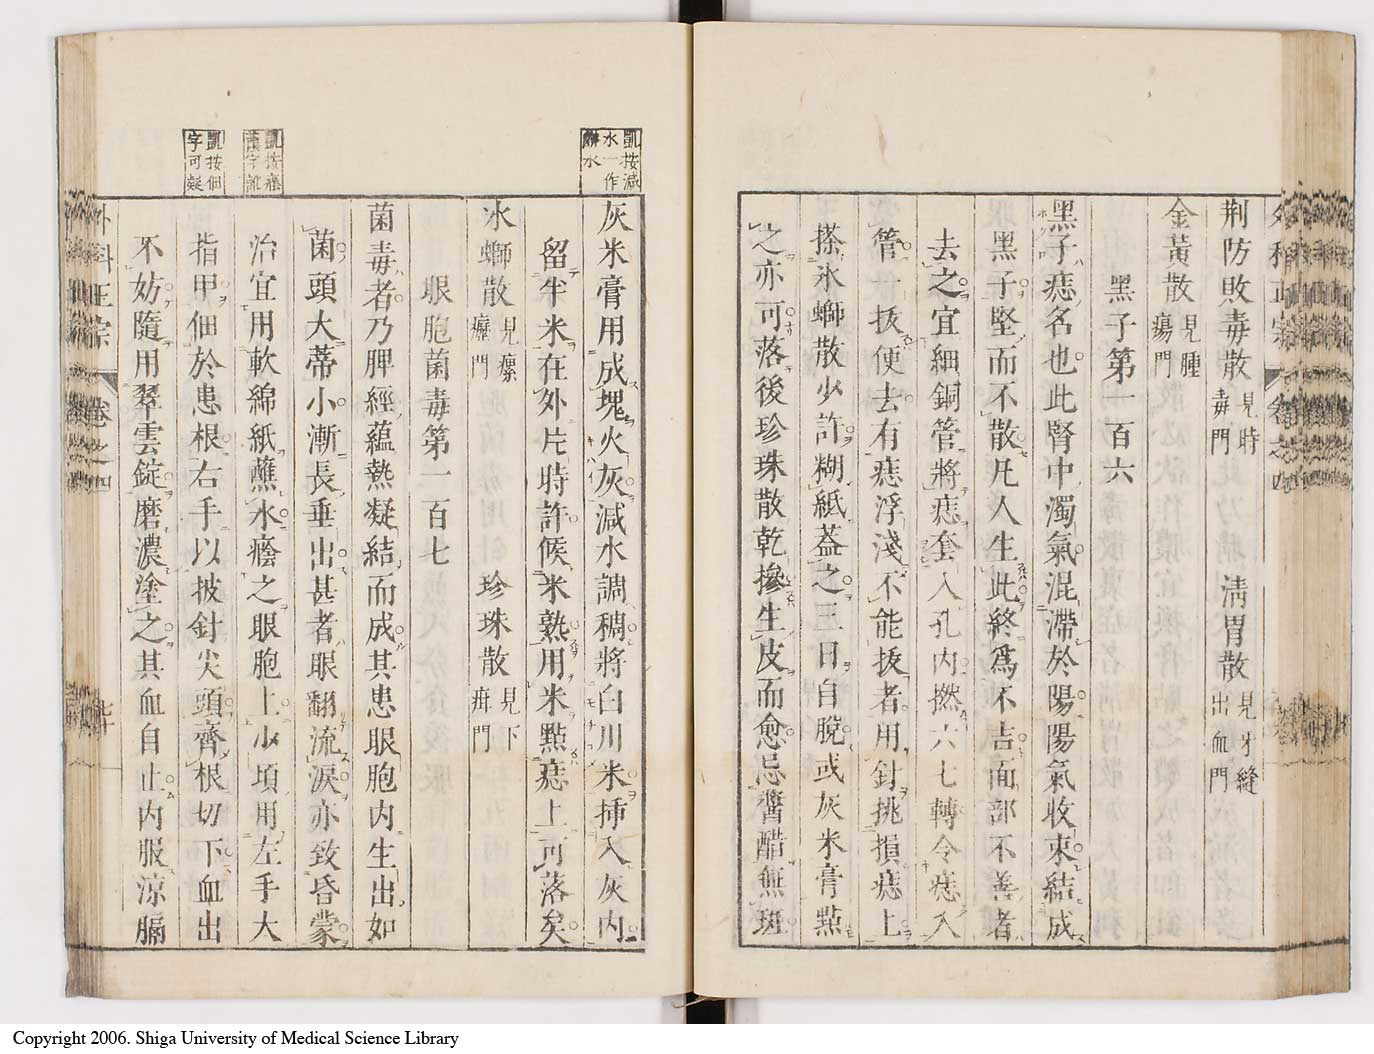 荆防敗毒散見時毒門　淸胃散見牙縫出血門
金黃散見腫瘍門
黑子第一百六
黑子痣名也此腎中濁氣混滯於陽陽氣收束結成
黑子堅而不散凡人生此終爲不吉面部不善者
去之宜細銅管將痣套入孔内撚六七轉令痣入
管一拔便去有痣浮淺不能拔者用針挑損痣上
搽氷螄散少許糊紙蓋之三日自脫或灰米膏點
之亦可落後珍珠散乾摻生皮而愈忌醬醋無斑
凱按滅水一作鹻水
灰米膏用成塊火灰減水調稠將白川米揷入灰内
留半米在外片時許候米熟用米點痣上可落矣
氷螄散見瘰癧門　珍珠散見下疳門
眼胞菌毒第一百七
菌毒者乃脾經蘊熱凝結而成其患眼胞内生出如
菌頭大蒂小漸長垂出甚者眼翻流淚亦致昏蒙
治宜用軟綿紙蘸水癊之眼胞上少頃用左手大
指甲佃於患根右手以披針尖頭齊根切下血出
不妨隨用翠雲錠磨濃塗之其血自止内服涼膈
凱按佃字可疑
外科正宗　卷之四　七十
Copyright 2006. Shiga University of Medical Science Library